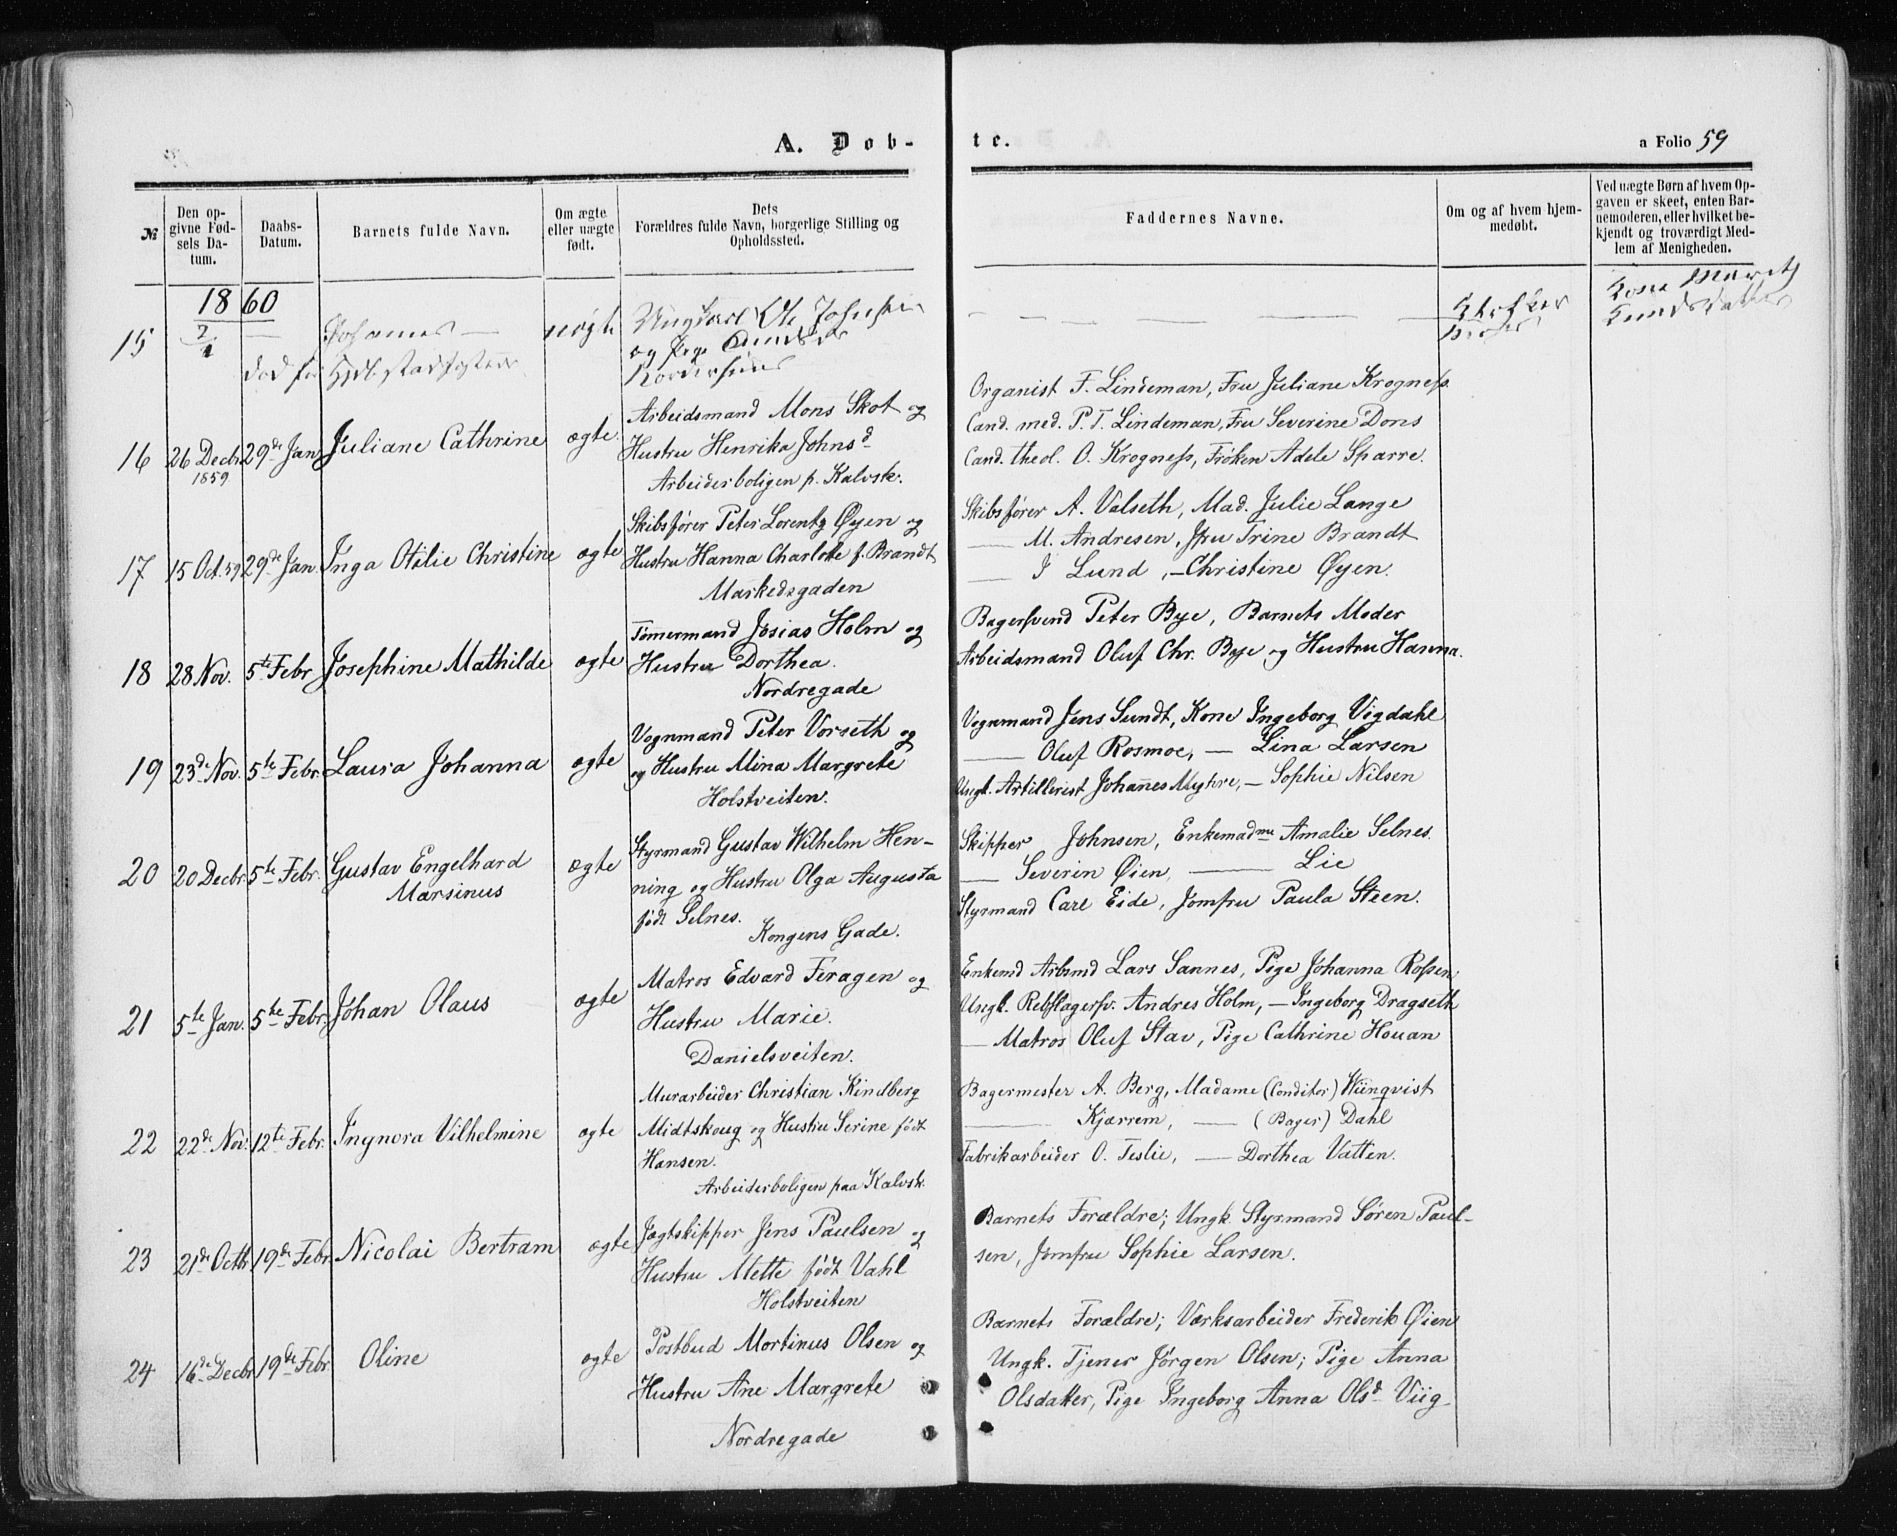 A. Døb-
te.
a Folio 59
№
Den op-
givne Fød-
sels Da-
tum.
Daabs-
Datum.
Barnets fulde Navn.
Om ægte
eller uægte
født.
Dets
Forældres fulde Navn, borgerlige Stilling og
Opholdssted.
Faddernes Navne.
Om og af hvem hjem-
medøbt.
Ved uægte Børn af hvem Op-
gaven er skeet, enten Bar-
nemoderen, eller hvilket be-
kjendt og troværdigt Med-
lem af Menigheden.
1860
15
2/1
Johannes
uægte
Ungkarl Ole Johnsen
og Pige
Kone Marit
Knudsdatter
16
26 Decbr 1859
29de Jan
Juliane Cathrine
ægte
Arbeidsmand Mons Skot og
Hustru Henrika Johnsd.
Arbeiderboligen p. Kalvsk.
Organist F. Lindeman, Fru Juliane Krogness
Cand. med. P. T. Lindeman, Fru Severine Dons
Cand. theol. O. Krogness, Frøken Adele Sparre.
17
15 Oct. 59
29de Jan.
Inga Otilie Christine
ægte
Skibsfører Peter Lorentz Øyen og
Hustru Hanna Charlotte f. Brandt
Markedsgaden
Skibsfører A. Valseth, Mad. Julie Lange
— M. Andresen, Jfru Trine Brandt
— J Lund, — Christine Øyen.
18
28 Nov.
5te Febr
Josephine Mathilde
ægte
Tømmermand Josias Holm og
Hustru Dorthea.
Nordregade
Bagersvend Peter Bye, Barnets Moder
Arbeidsmand Oluf Chr. Bye og Hustru Hanna.
19
23de Nov.
5te Febr.
Laura Johanna
ægte
Vognmand Peter Vorseth og
og Hustru Mina Margrete
Holstveiten.
Vognmand Jens Sundt, Kone Ingeborg Vigdahl
— Oluf Rosmoe, — Lina Larsen
Ungk. Artillerist Johannes Myhre, — Sophie Nilsen
20
20 Decbr
5te Febr.
Gustav Engelhard
Marsinus
ægte
Styrmand Gustav Wilhelm Hen-
ning og Hustru Olga Augusta
født Selnes.
Kongens Gade.
Skipper Johnsen, Enkemadme Amalie Selnes.
— Severin Øien, — Lie
Styrmand Carl Eide, Jomfru Paula Steen.
21
5te Jan.
5te Febr.
Johan Olaus
ægte
Matros Edvard Feragen og
Hustru Marie.
Danielsveiten.
Enkemd Arbmd Lars Sannes, Pige Johanna Rossen
Ungk. Rebslagersv. Andres Holm, — Ingeborg Dragseth
— Matros Oluf Stav, Pige Cathrine Houan
22
22de Nov.
12te Febr.
Ingnora Vilhelmine
ægte
Murarbeider Christian Kindberg
Midtskoug og Hustru Serine født
Hansen.
Arbeiderboligen paa Kalvsk.
Bagermester A. Berg, Madame (Conditor) Wiinqvist
— Kjærrem, — (Bager) Dahl
Fabrikarbeider O. Teslie, — Dorthea Vatten.
23
21de Octbr
19de Febr.
Nicolai Bertram
ægte
Jægtskipper Jens Paulsen og
Hustru Mette født Vahl
Holstveiten
Barnets Forældre; Ungk. Styrmand Søren Paul-
sen, Jomfru Sophie Larsen.
24
16de Decbr
19de Febr
Oline
ægte
Postbud Mortinus Olsen og
Hustru Ane Margrete
Nordregade
Barnets Forældre; Værksarbeider Frederik Øien
Ungk. Tjener Jørgen Olsen; Pige Anna
Olsdatter, Pige Ingeborg Anna Olsd. Viig.